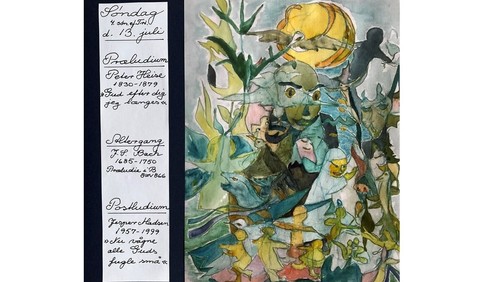 Søndag
4. søn. ef. Trin.
d. 13. juli
Præludium
Peter Heise
1830-1879
»Gud efter dig
jeg længes«
Altergang
J. S. Bach
1685-1750
Præludie i B
BWV 866
Postludium
Jesper Madsen
1957-1999
»Nu vågne
alle Guds
fugle små«